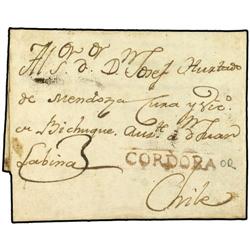 Al S.r D.n Josef Hurtado
de Mendoza Cura y Vic.o
en Bichuque. Aus.te á d.n Juan
Labina 3
CORDOBA
Chile